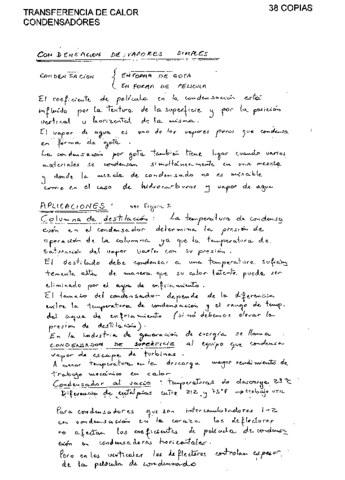 TRANSFERENCIA DE CALOR
38 COPIAS
CONDENSADORES
CONDENSACION DE VAPORES SIMPLES
CONDENSACION { EN FORMA DE GOTA
EN FORMA DE PELICULA
El coeficiente de película en la condensación está
influído por la textura de la superficie y por la posición
vertical u horizontal de la misma.
El vapor de agua es uno de los vapores puros que condensa
en forma de gota.
La condensación por gota también tiene lugar cuando varios
materiales se condensan simultáneamente en una mezcla
y donde la mezcla de condensado no es miscible
como en el caso de hidrocarburos y vapor de agua.
APLICACIONES: ver figura
Columna de destilación: La temperatura de condensa
ción en el condensador determina la presión de
operación de la columna ya que la temperatura de
saturación del vapor varía con su presión.
El destilado debe condensar a una temperatura suficien
temente alta de manera que su calor latente pueda ser
eliminado por el agua de enfriamiento.
El tamaño del condensador depende de la diferencia
entre la temperatura de condensación y el rango de temp.
del agua de enfriamiento (si no debemos elevar la
presión de destilación).
En la industria de generación de energía se llama
CONDENSADOR DE SUPERFICIE al equipo que condensa
vapor de escape de turbinas.
A menor temperatura en la descarga mayor rendimiento de
trabajo mecánico en calor
Condensador al vacío: temperaturas de descarga
Diferencia de entalpías entre 212 y 75°F → trabajo útil
Para condensadores que son intercambiadores 1-2
con condensación en la coraza los deflectores
no afectan los coeficientes de película de condensa
ción en condensadores horizontales.
Pero en los verticales los deflectores controlan espesor
de la película de condensado